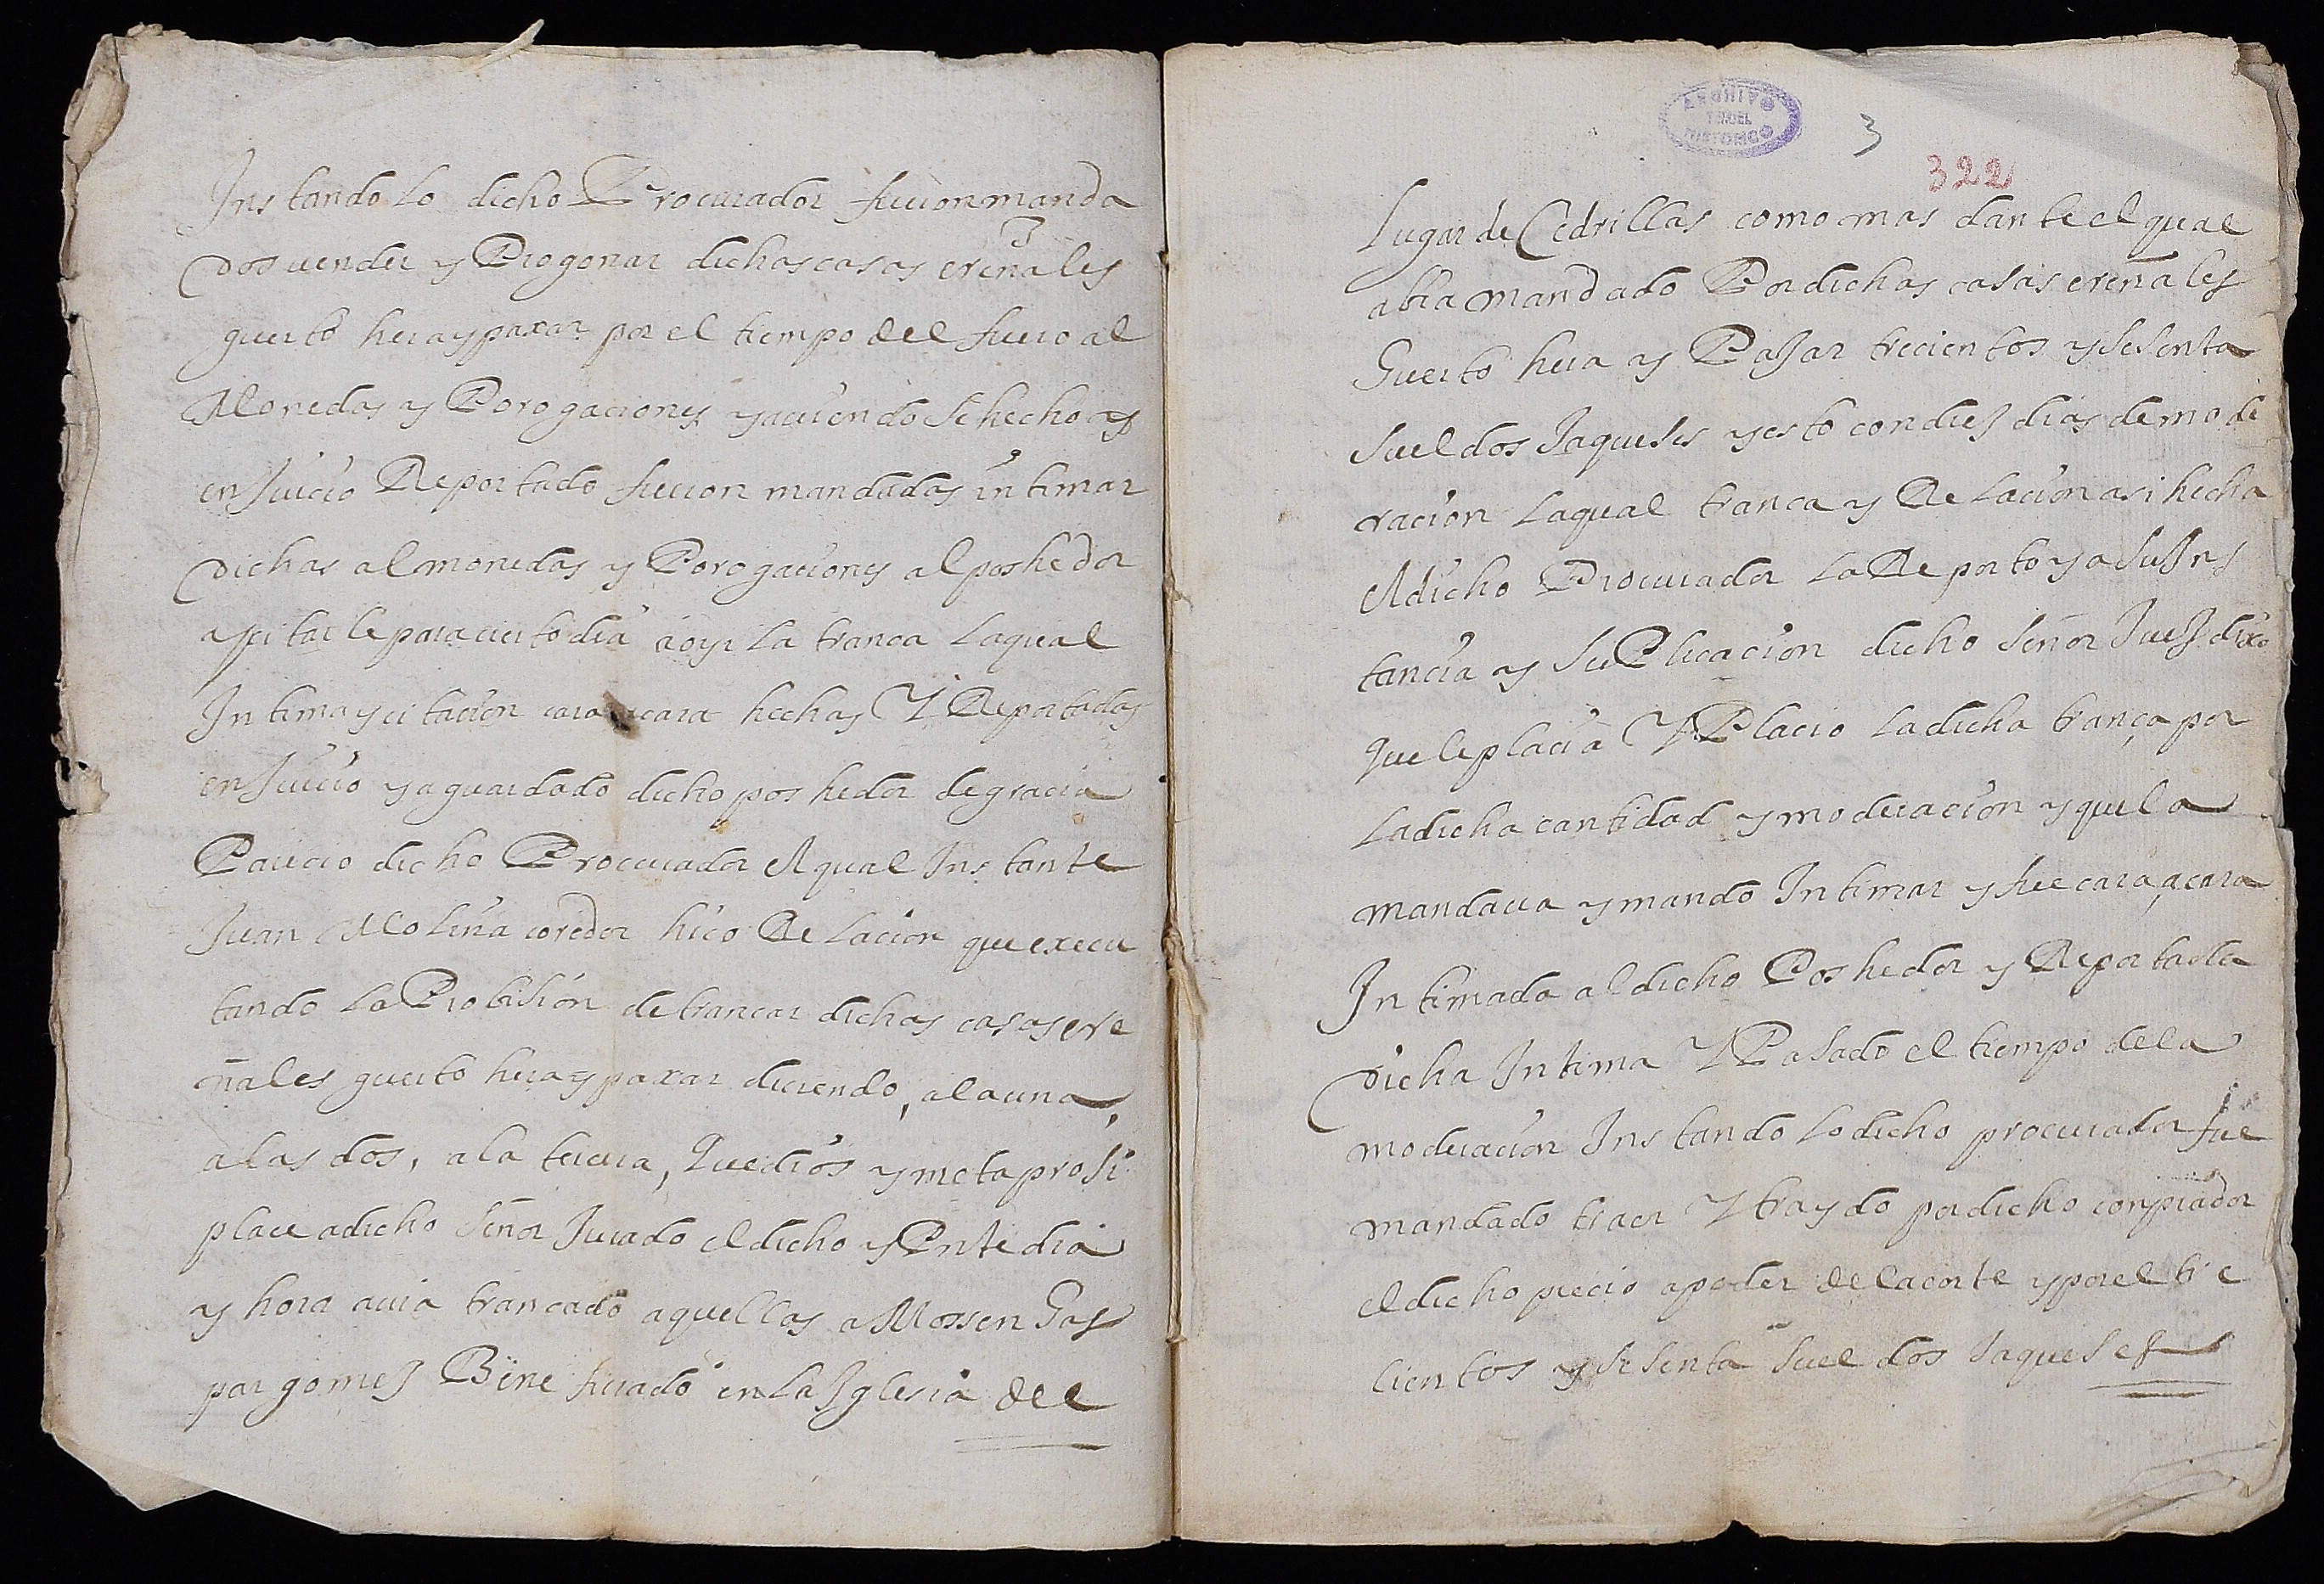 Instando lo dicho Procurador fueron manda
dos uender y Progonar dichas casas ereñales
guerto hera y paxar por el tiempo del fuero al
Monedas y Porogaciones y auiendose hecho y
en Juicio Reportado fueron mandadas intimar
dichas almonedas y Porogaciones al poshedor
y citarle para cierto dia a oyr la tranca la qual
Intima y citacion cara a cara hechas Y Reportadas
en Juicio y aguardado dicho poshedor de gracia
Parecio dicho Procurador Al qual Instante
Juan Molina coredor hiço Relacion que execu
tando la Probision de trancar dichas casas ere
ñales guerto hera y paxar diciendo, a la una,
a las dos, a la tercera, que dios y meta pro si
place a dicho Señor Jurado el dicho y Pnte dia
y hora auia trancado aquellas a Mossen Gas
par gomez Bene ficiado en la Iglesia del
ARCHIVO
TERUEL
HISTORICO
3
322
Lugar de Cedrillas como mas dante el qual
abia mandado Por dichas casas ereñales
Guerto hera y PaJar trecientos y sesenta
sueldos Jaqueses y esto con diez dias de mode
racion la qual tranca y Relacion asi hecha
Al dicho Procurador la Reporto y a su Ins
tancia y suPlicacion dicho Señor Juez dixo
que le placia Y Placio la dicha trança por
la dicha cantidad y moderacion y que la
mandaua y mando Intimar y fue cara a cara
Intimada al dicho Poshedor y Reportada
dicha Intima Y Pasado el tiempo de la
moderacion Instando lo dicho procurador fue
mandado traer Y traydo por dicho conprador
el dicho precio a poder de la corte y por el tre
cientos y sesenta sueldos Jaqueses